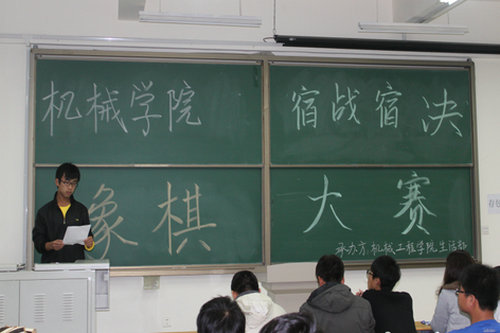 机械学院 宿战宿决
象棋大赛
承办方机械工程学院生活部